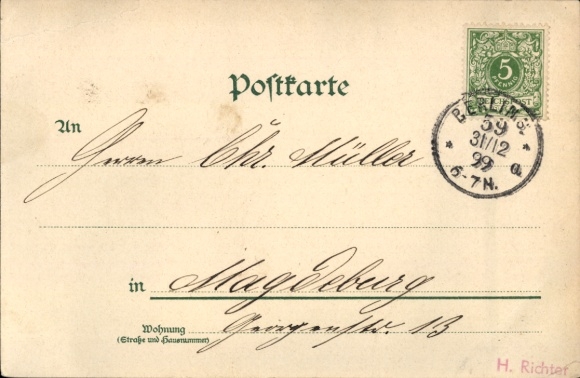 5
Postkarte
BERLIN S.
59
31/12
99
6-7N.
a.
An
Herrn Chr. Müller
in Magdeburg
Wohnung
(Straße und Hausnummer)
Georgenstr. 13
H. Richter